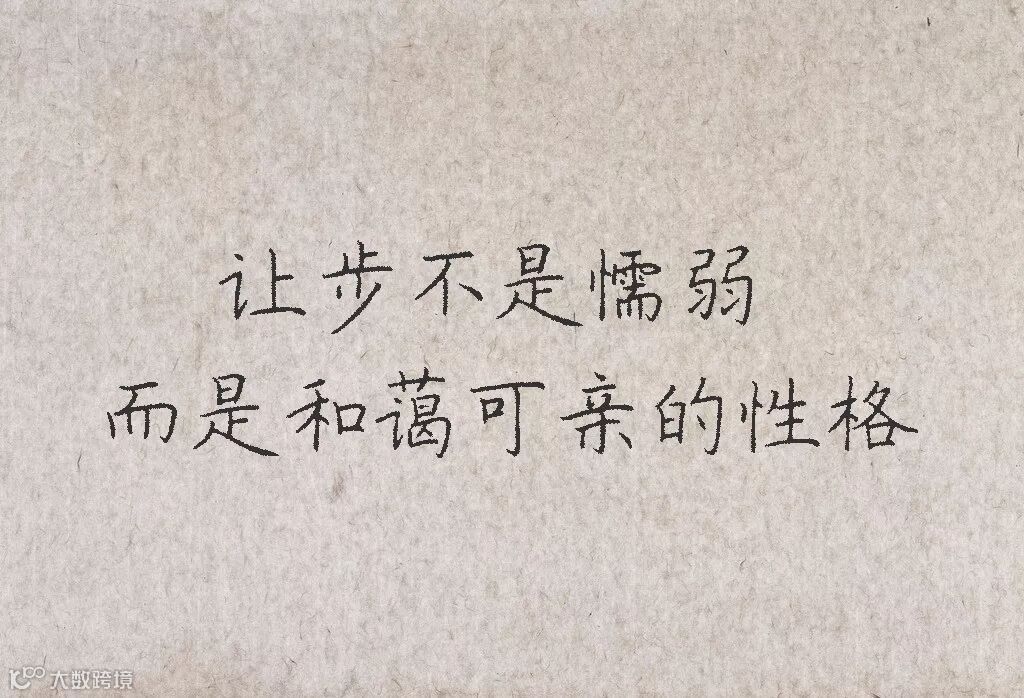 让步不是懦弱
而是和蔼可亲的性格
大数跨境